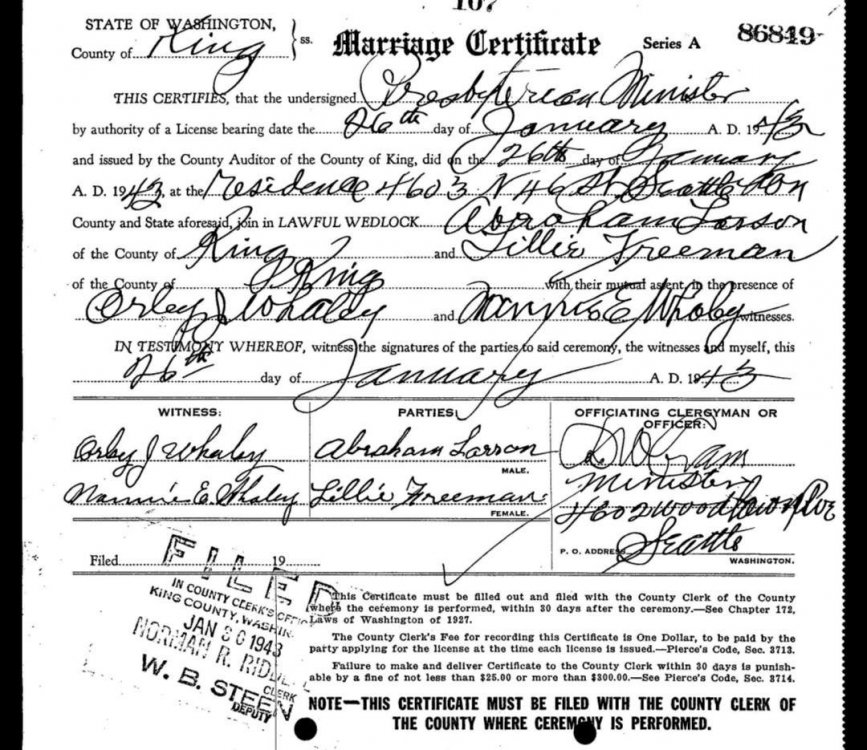 107
STATE OF WASHINGTON, ss. Marriage Certificate Series A 86849
County of King
THIS CERTIFIES, that the undersigned Presbyterian Minister
by authority of a License bearing date the 26th day of January A. D. 1943
and issued by the County Auditor of the County of King, did on the 26th day of January
A. D. 1943 at the Residence 4603 N 46 St Seattle
County and State aforesaid, join in LAWFUL WEDLOCK Abraham Larson
of the County of King and Lillie Freeman
of the County of King with their mutual assent, in the presence of
Orley J Whaley and Nannie E Whaley witnesses.
IN TESTIMONY WHEREOF, witness the signatures of the parties to said ceremony, the witnesses and myself, this
26th day of January A. D. 1943
WITNESS: PARTIES OFFICIATING CLERGYMAN OR OFFICER:
Orley J Whaley Abraham Larson
MALE.
Minister
Nannie E. Whaley Lillie Freeman
FEMALE.
4602 Woodlawn Ave
Seattle
P. O. ADDRESS WASHINGTON.
Filed 19
FILED
IN COUNTY CLERK'S OFFICE
KING COUNTY, WASHIN
JAN 30 1943
NORMAN R. RIDDELL
CLERK
W. B. STEEN
DEPUTY
This Certificate must be filled out and filed with the County Clerk of the County
where the ceremony is performed, within 30 days after the ceremony.—See Chapter 172,
Laws of Washington of 1927.
The County Clerk's Fee for recording this Certificate is One Dollar, to be paid by the
party applying for the license at the time each license is issued.—Pierce's Code, Sec. 3713.
Failure to make and deliver Certificate to the County Clerk within 30 days is punish-
able by a fine of not less than $25.00 or more than $300.00—See Pierce's Code, Sec. 3714.
NOTE—THIS CERTIFICATE MUST BE FILED WITH THE COUNTY CLERK OF
THE COUNTY WHERE CEREMONY IS PERFORMED.